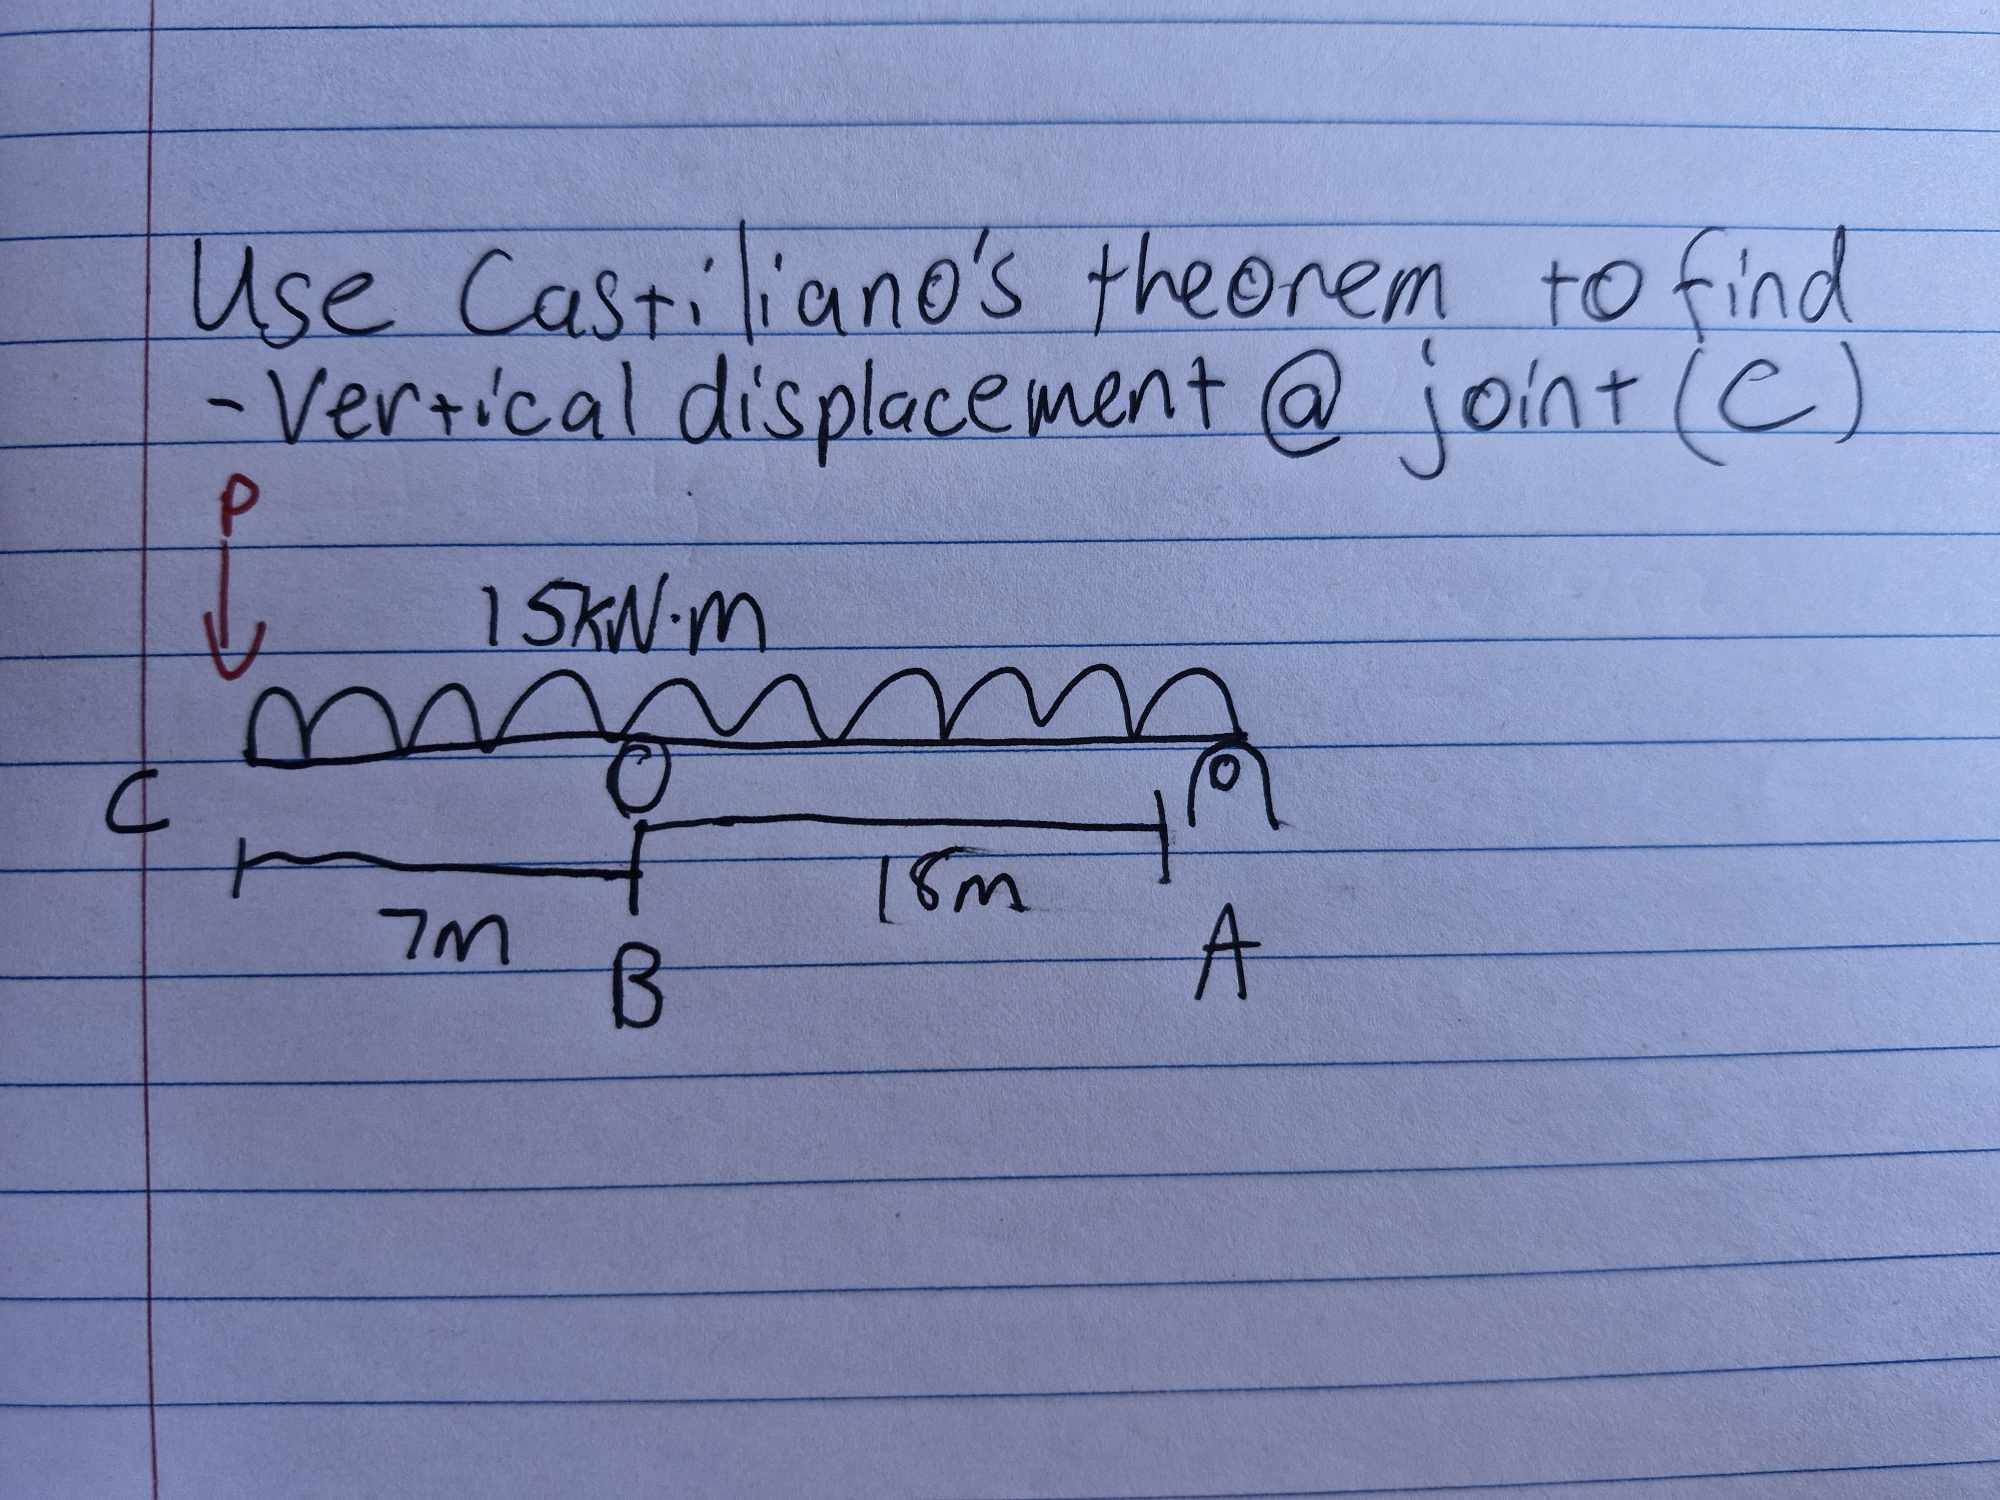 Use Castiliano's theorem to find
- Vertical displacement @ joint (C)
P
15kN·m
C
18m
7m
B
A